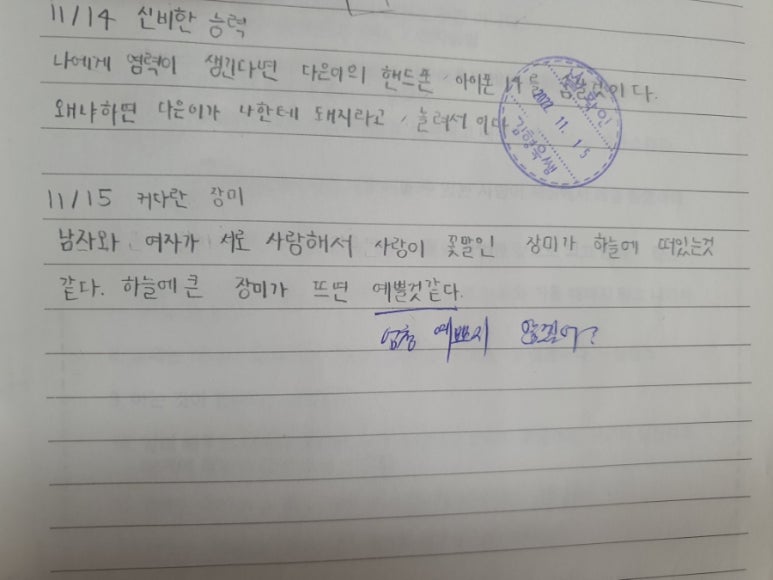 11/14 신비한 능력
나에게 염력이 생긴다면 다은이의 핸드폰 아이폰 14를 이다.
왜냐하면 다은이가 나한테 돼지라고 놀려서 이다
확인
2022. 11. 15
김형욱쌤
11/15 커다란 장미
남자와 여자가 서로 사랑해서 사랑이 꽃말인 장미가 하늘에 떠있는것
같다. 하늘에 큰 장미가 뜨면 예쁠것같다.
엄청 예쁘지 않겠어?